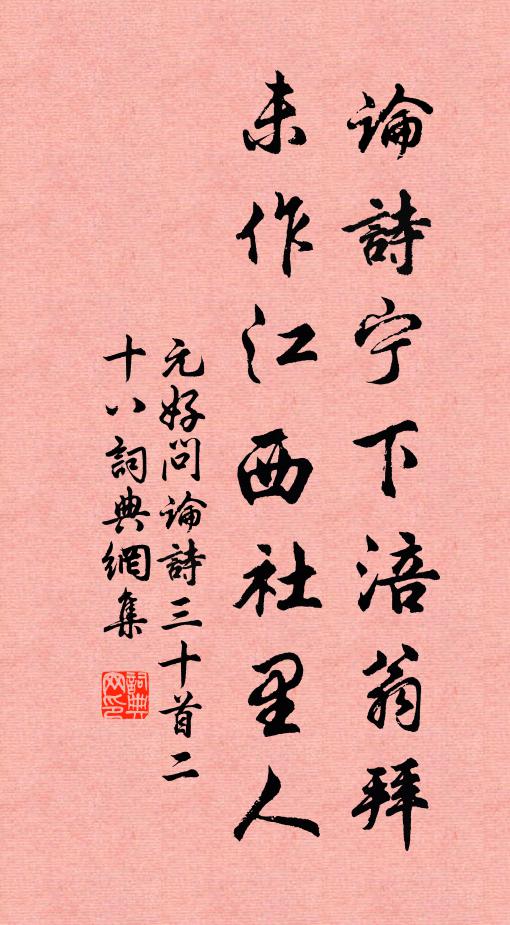 論詩宁下涪翁拜
未作江西社里人
元好问論詩三十首二
十八詞典網集
詞典
网印